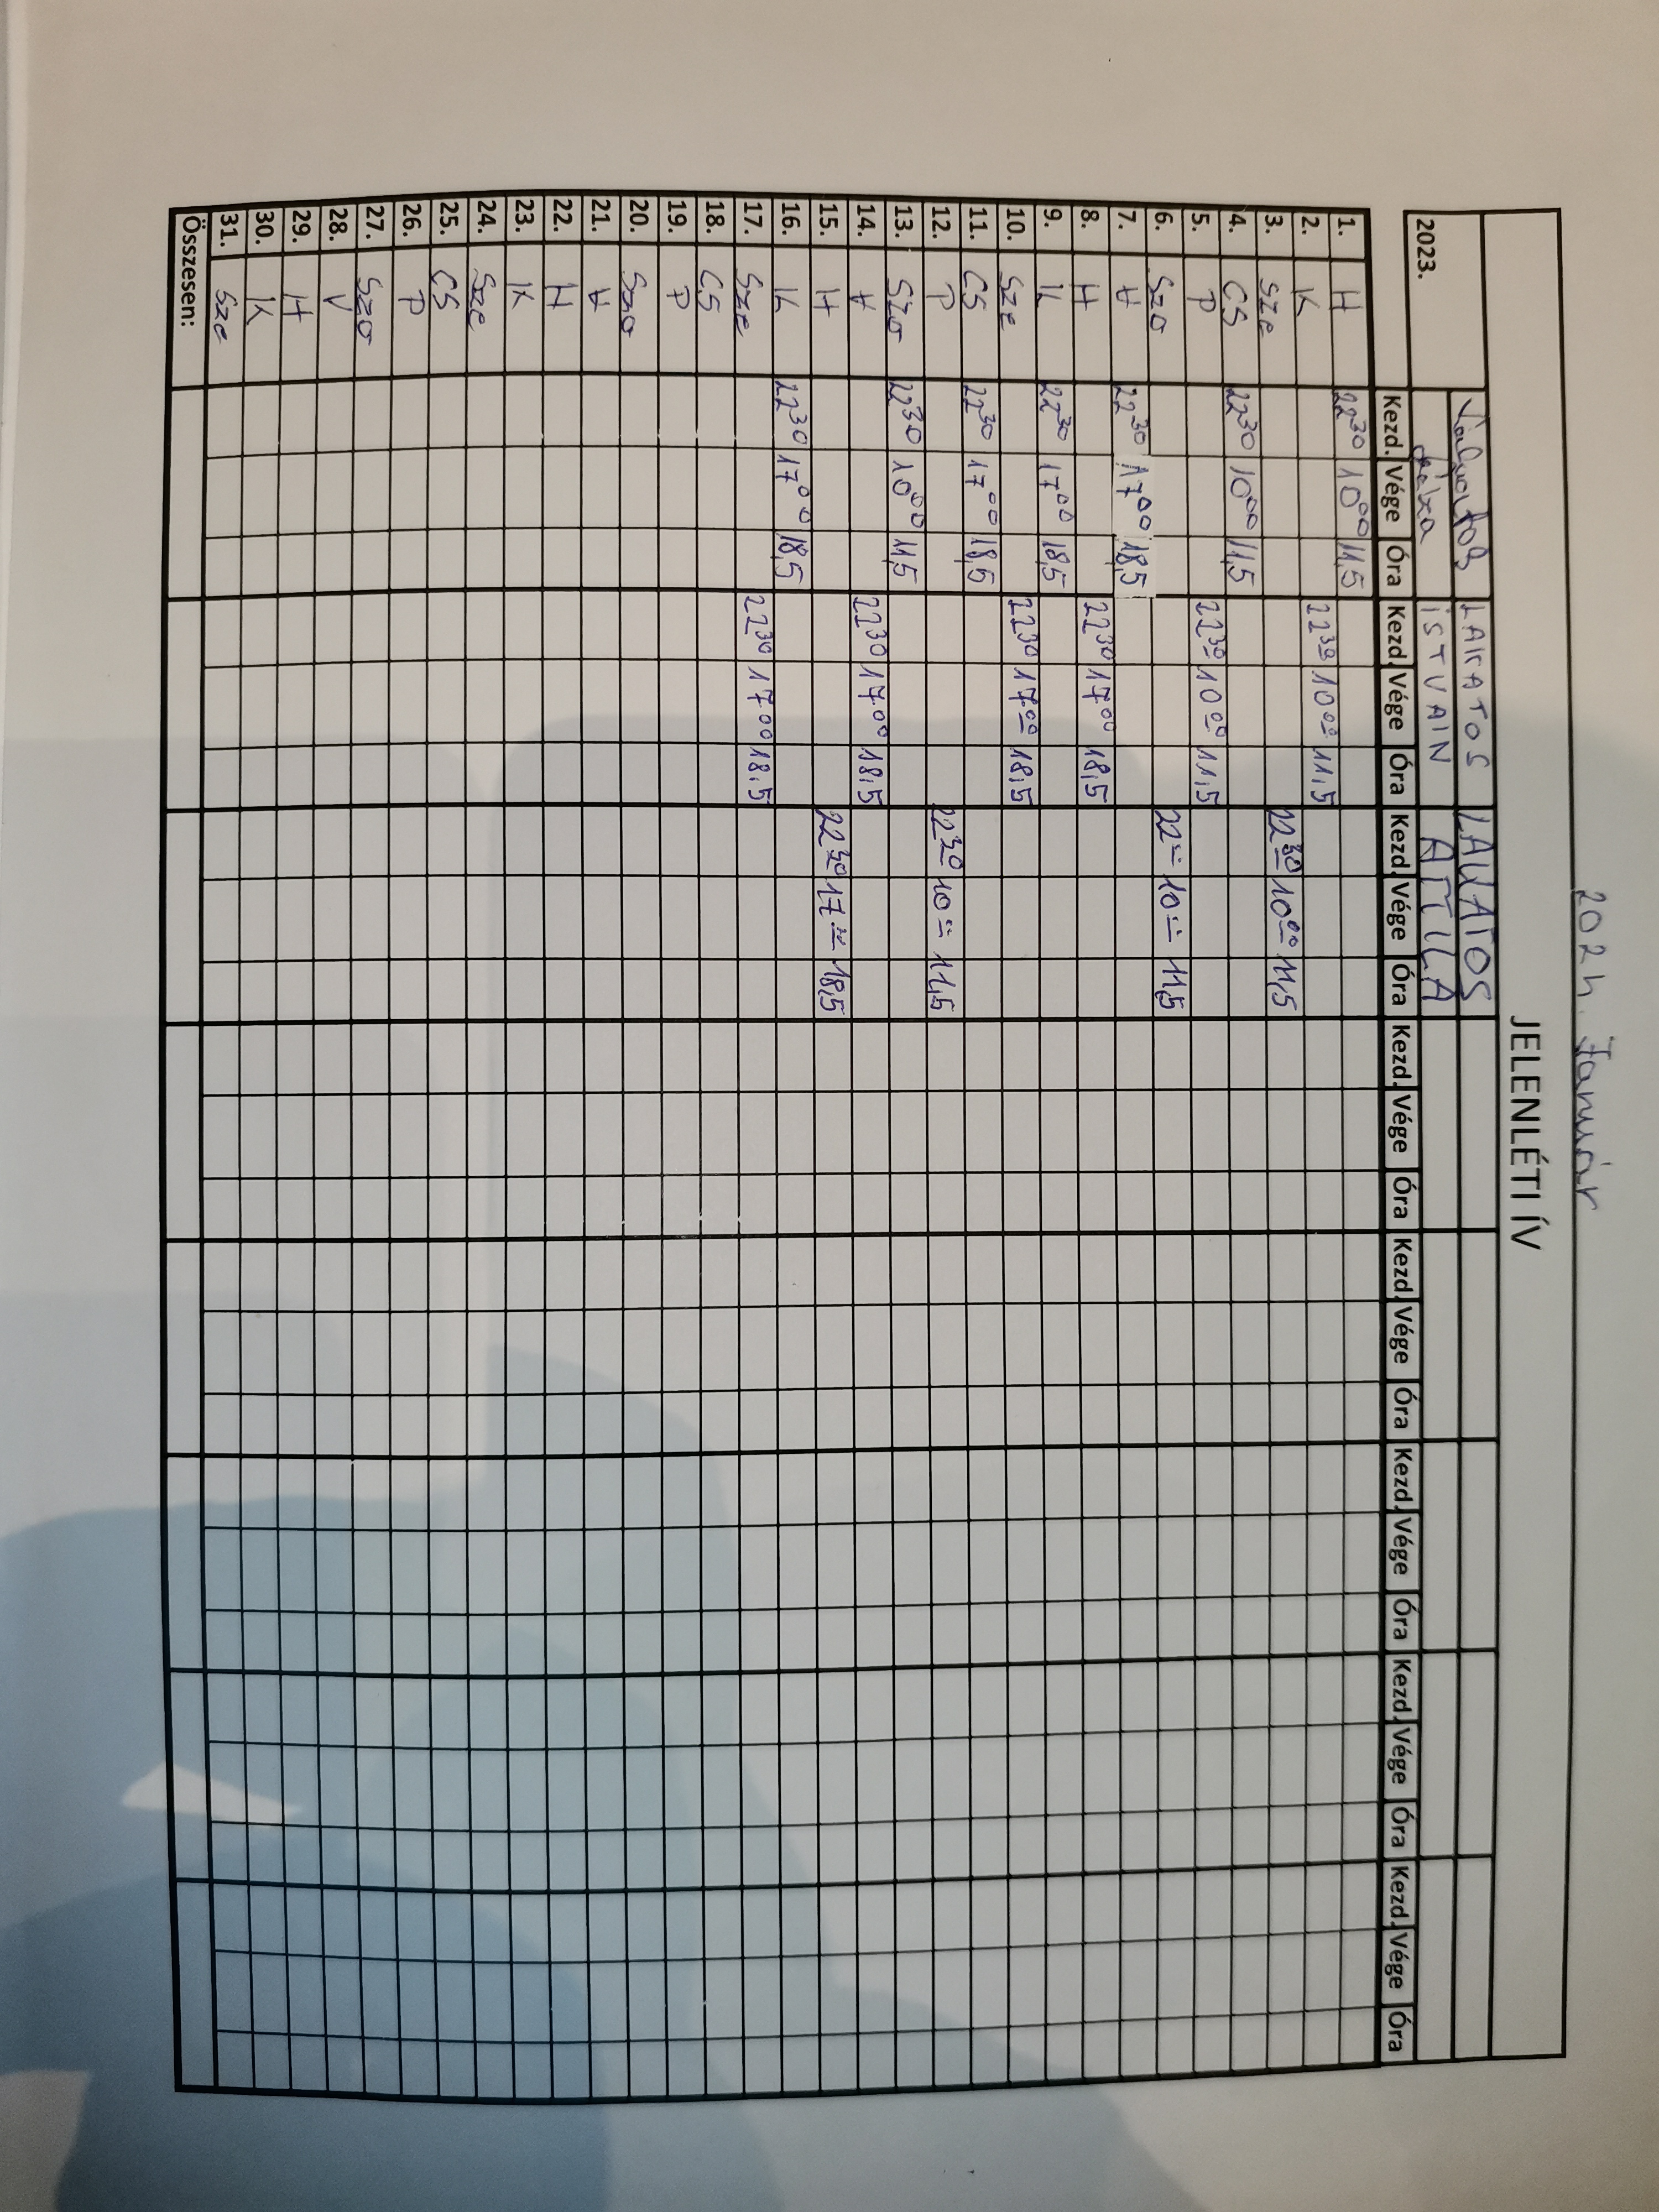 2024. Január
JELENLÉTI ÍV
Lakatos LAKATOS LAKATOS
2023. Géza ISTVAIN ATTILA
Kezd. Vége Óra Kezd. Vége Óra Kezd. Vége Óra Kezd. Vége Óra Kezd. Vége Óra Kezd. Vége Óra Kezd. Vége Óra Kezd. Vége Óra
1. H 22³⁰ 10⁰⁰ 11,5
2. K 22³⁰ 10⁰⁰ 11,5
3. Sze 22³⁰ 10⁰⁰ 11,5
4. CS 22³⁰ 10⁰⁰ 11,5
5. P 22³⁰ 10⁰⁰ 11,5
6. Szo 22 10 11,5
7. V 22³⁰ 17⁰⁰ 18,5
8. H 22³⁰ 17⁰⁰ 18,5
9. K 22³⁰ 17⁰⁰ 18,5
10. Sze 22³⁰ 17⁰⁰ 18,5
11. CS 22³⁰ 17⁰⁰ 18,5
12. P 22³⁰ 10⁰⁰ 11,5
13. Szo 22³⁰ 10⁰⁰ 11,5
14. V 22³⁰ 17⁰⁰ 18,5
15. H 22³⁰ 17⁰⁰ 18,5
16. K 22³⁰ 17⁰⁰ 18,5
17. Sze 22³⁰ 17⁰⁰ 18,5
18. CS
19. P
20. Szo
21. V
22. H
23. K
24. Sze
25. CS
26. P
27. Szo
28. V
29. H
30. K
31. Sze
Összesen: